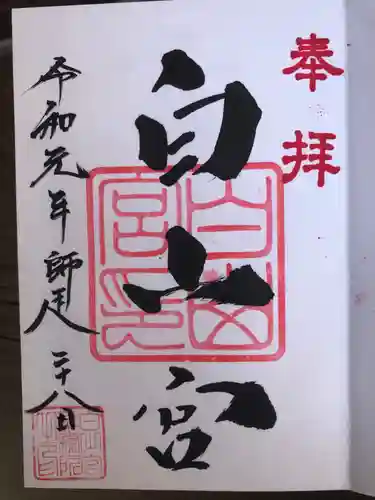 奉拝
白山宮
令和元年師走二十八日